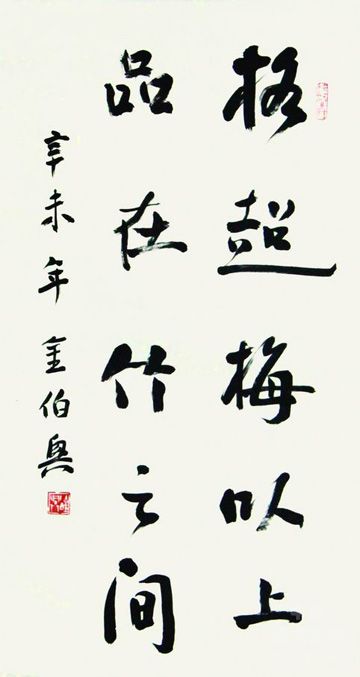 格超梅以上
品在竹之间
辛未年 金伯兴